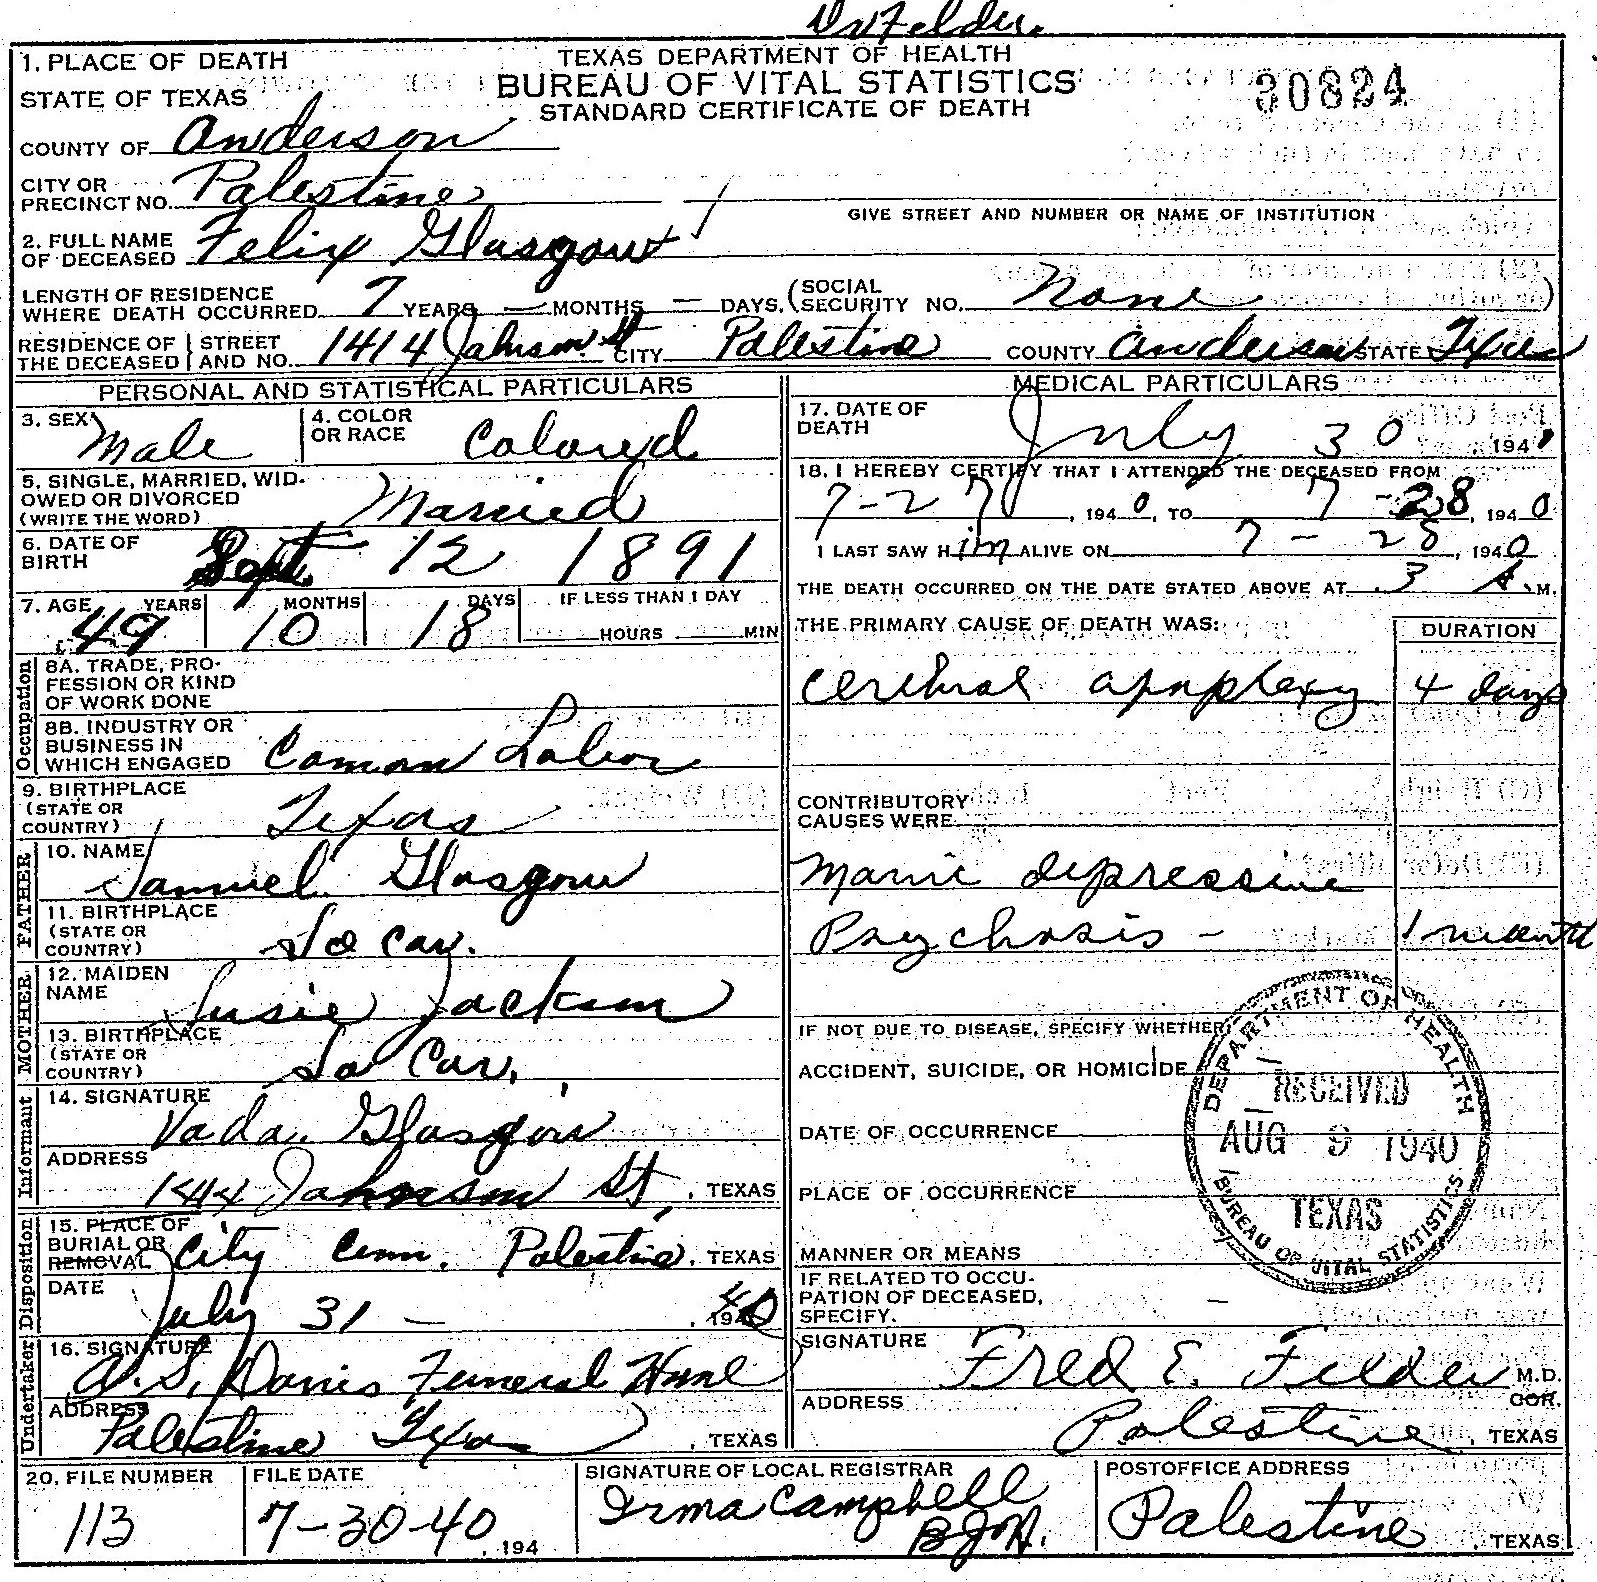 Dr Felder.
TEXAS DEPARTMENT OF HEALTH
BUREAU OF VITAL STATISTICS
STANDARD CERTIFICATE OF DEATH
30824
1. PLACE OF DEATH
STATE OF TEXAS
COUNTY OF Anderson
CITY OR PRECINCT NO. Palestine
GIVE STREET AND NUMBER OR NAME OF INSTITUTION
2. FULL NAME OF DECEASED Felix Glasgow
LENGTH OF RESIDENCE WHERE DEATH OCCURRED 7 YEARS — MONTHS — DAYS. (SOCIAL SECURITY NO. None)
RESIDENCE OF THE DECEASED STREET AND NO. 1414 Johnson St CITY Palestine COUNTY Anderson STATE Texas
PERSONAL AND STATISTICAL PARTICULARS
3. SEX Male
4. COLOR OR RACE Colored
5. SINGLE, MARRIED, WIDOWED OR DIVORCED (WRITE THE WORD) Married
6. DATE OF BIRTH Sept. 12 1891
7. AGE YEARS 49 MONTHS 10 DAYS 18 IF LESS THAN 1 DAY HOURS MIN
Occupation
8A. TRADE, PROFESSION OR KIND OF WORK DONE
8B. INDUSTRY OR BUSINESS IN WHICH ENGAGED Comon Labor
9. BIRTHPLACE (STATE OR COUNTRY) Texas
FATHER
10. NAME Samuel Glasgow
11. BIRTHPLACE (STATE OR COUNTRY) So Car.
MOTHER
12. MAIDEN NAME Susie Jackson
13. BIRTHPLACE (STATE OR COUNTRY) So Car.
Informant
14. SIGNATURE Vada Glasgow
ADDRESS Johnson St, TEXAS
Disposition
15. PLACE OF BURIAL OR REMOVAL City Cem. Palestine, TEXAS
DATE July 31 — 1940
Undertaker
16. SIGNATURE A.S. Davis Funeral Home
ADDRESS Palestine Texas, TEXAS
MEDICAL PARTICULARS
17. DATE OF DEATH July 30, 1940
18. I HEREBY CERTIFY THAT I ATTENDED THE DECEASED FROM
7-27, 1940, TO 7-28, 1940
I LAST SAW Him ALIVE ON 7-28, 1940
THE DEATH OCCURRED ON THE DATE STATED ABOVE AT 3 A.M.
THE PRIMARY CAUSE OF DEATH WAS: DURATION
Cerebral apoplexy 4 days
CONTRIBUTORY CAUSES WERE
Manic depressive
Psychosis - 1 month
IF NOT DUE TO DISEASE, SPECIFY WHETHER
ACCIDENT, SUICIDE, OR HOMICIDE
DATE OF OCCURRENCE
PLACE OF OCCURRENCE
MANNER OR MEANS
IF RELATED TO OCCUPATION OF DECEASED, SPECIFY. —
DEPARTMENT OF HEALTH
RECEIVED
AUG 9 1940
TEXAS
BUREAU OF VITAL STATISTICS
SIGNATURE Fred E. Felder M.D. COR.
ADDRESS Palestine, TEXAS
20. FILE NUMBER 113
FILE DATE 7-30-40, 194
SIGNATURE OF LOCAL REGISTRAR Irma Campbell
B.J.H.
POSTOFFICE ADDRESS Palestine, TEXAS